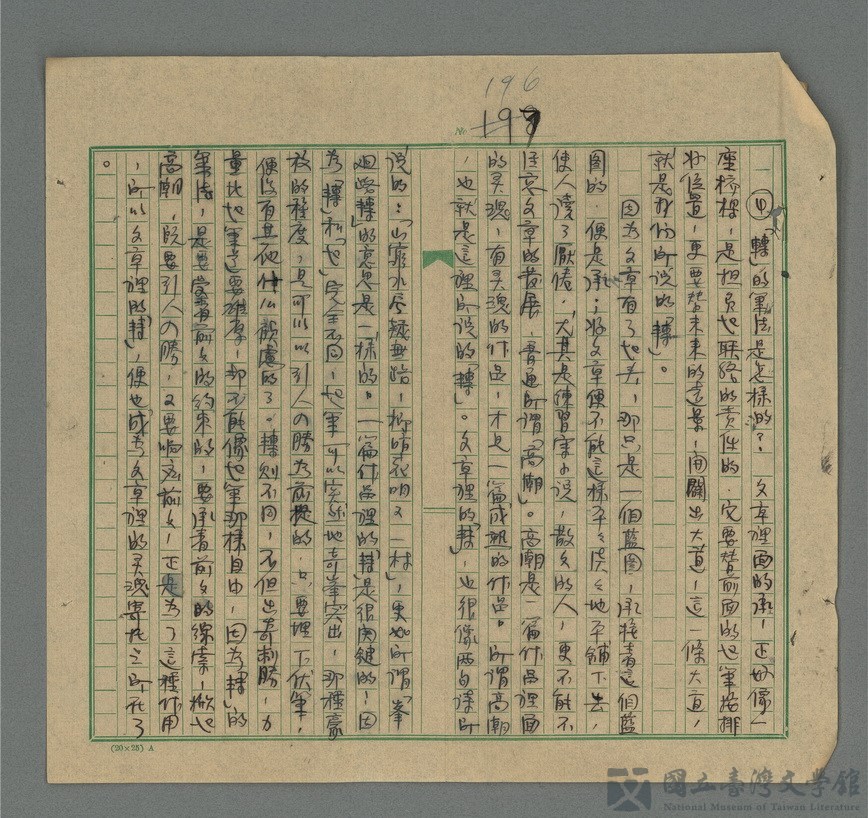 196
No. 197
④「轉」的筆法是怎樣的？文章裡面的承，正好像一
座橋樑，是担負起聯絡的責任的一定要替前面的起筆安排
好位置，更要替未來的遠景，開闢出大道，這一條大道，
就是我們所說的「轉」。
因為文章有了起頭，那只是一個藍圖，承接着這個藍
圖的，便是承；好文章便不能這樣平平淡淡地平鋪下去，
使人讀了厭倦，尤其是練習寫小說，散文的人，更不能不
注意文章的發展，普通所謂「高潮」。高潮是一篇作品裡面
的灵魂，有灵魂的作品，才是一篇成熟的作品。所謂高潮
，也就是這裡所說的「轉」。文章裡的「轉」，也很像兩句詩所
說的：「山窮水尽疑無路，柳暗花明又一村」，更如所謂「峯
迴路轉」的意思是一樣的。一篇作品裡的「轉」是很関鍵的！因
為「轉」和「起」完全不同，起筆可以突然地奇峯突出，那種豪
放的程度，是可以以引人入勝為前提的，只要埋下伏筆，
便沒有其他什么顧慮的了。轉則不同，不但出奇制勝，力
量比起筆還要雄厚，那不能像起筆那樣自由，因為「轉」的
筆法，是要受着前文的約束的，要承着前文的線索，掀起
高潮，既要引人入勝，又要响应前文，正是為了這種作用
，所以文章裡的「轉」，便也成為文章裡的灵魂寄托之所在了
。
(20×25) A
國立臺灣文學館
National Museum of Taiwan Literature